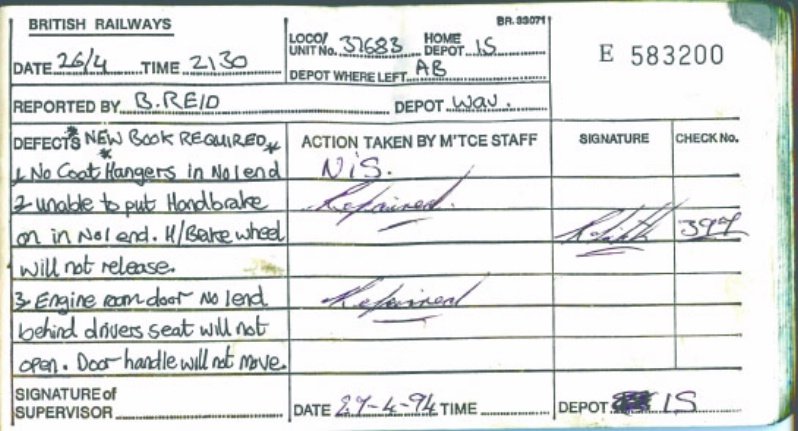 BRITISH RAILWAYS
BR. 33071
LOCO/ UNIT No. 37683 HOME DEPOT IS
E 583200
DATE 26/4 TIME 2130
DEPOT WHERE LEFT AB
REPORTED BY B. REID DEPOT WAV.
DEFECTS * NEW BOOK REQUIRED * *
ACTION TAKEN BY M'TCE STAFF
SIGNATURE
CHECK No.
1, No Coat Hangers in No1 end
NIS.
2 Unable to put Handbrake
Repaired.
on in No1 end. H/Brake wheel
397
will not release.
3 Engine room door No1 end
Repaired
behind drivers seat will not
open. Door handle will not move.
SIGNATURE of SUPERVISOR
DATE 27-4-94 TIME
DEPOT IS